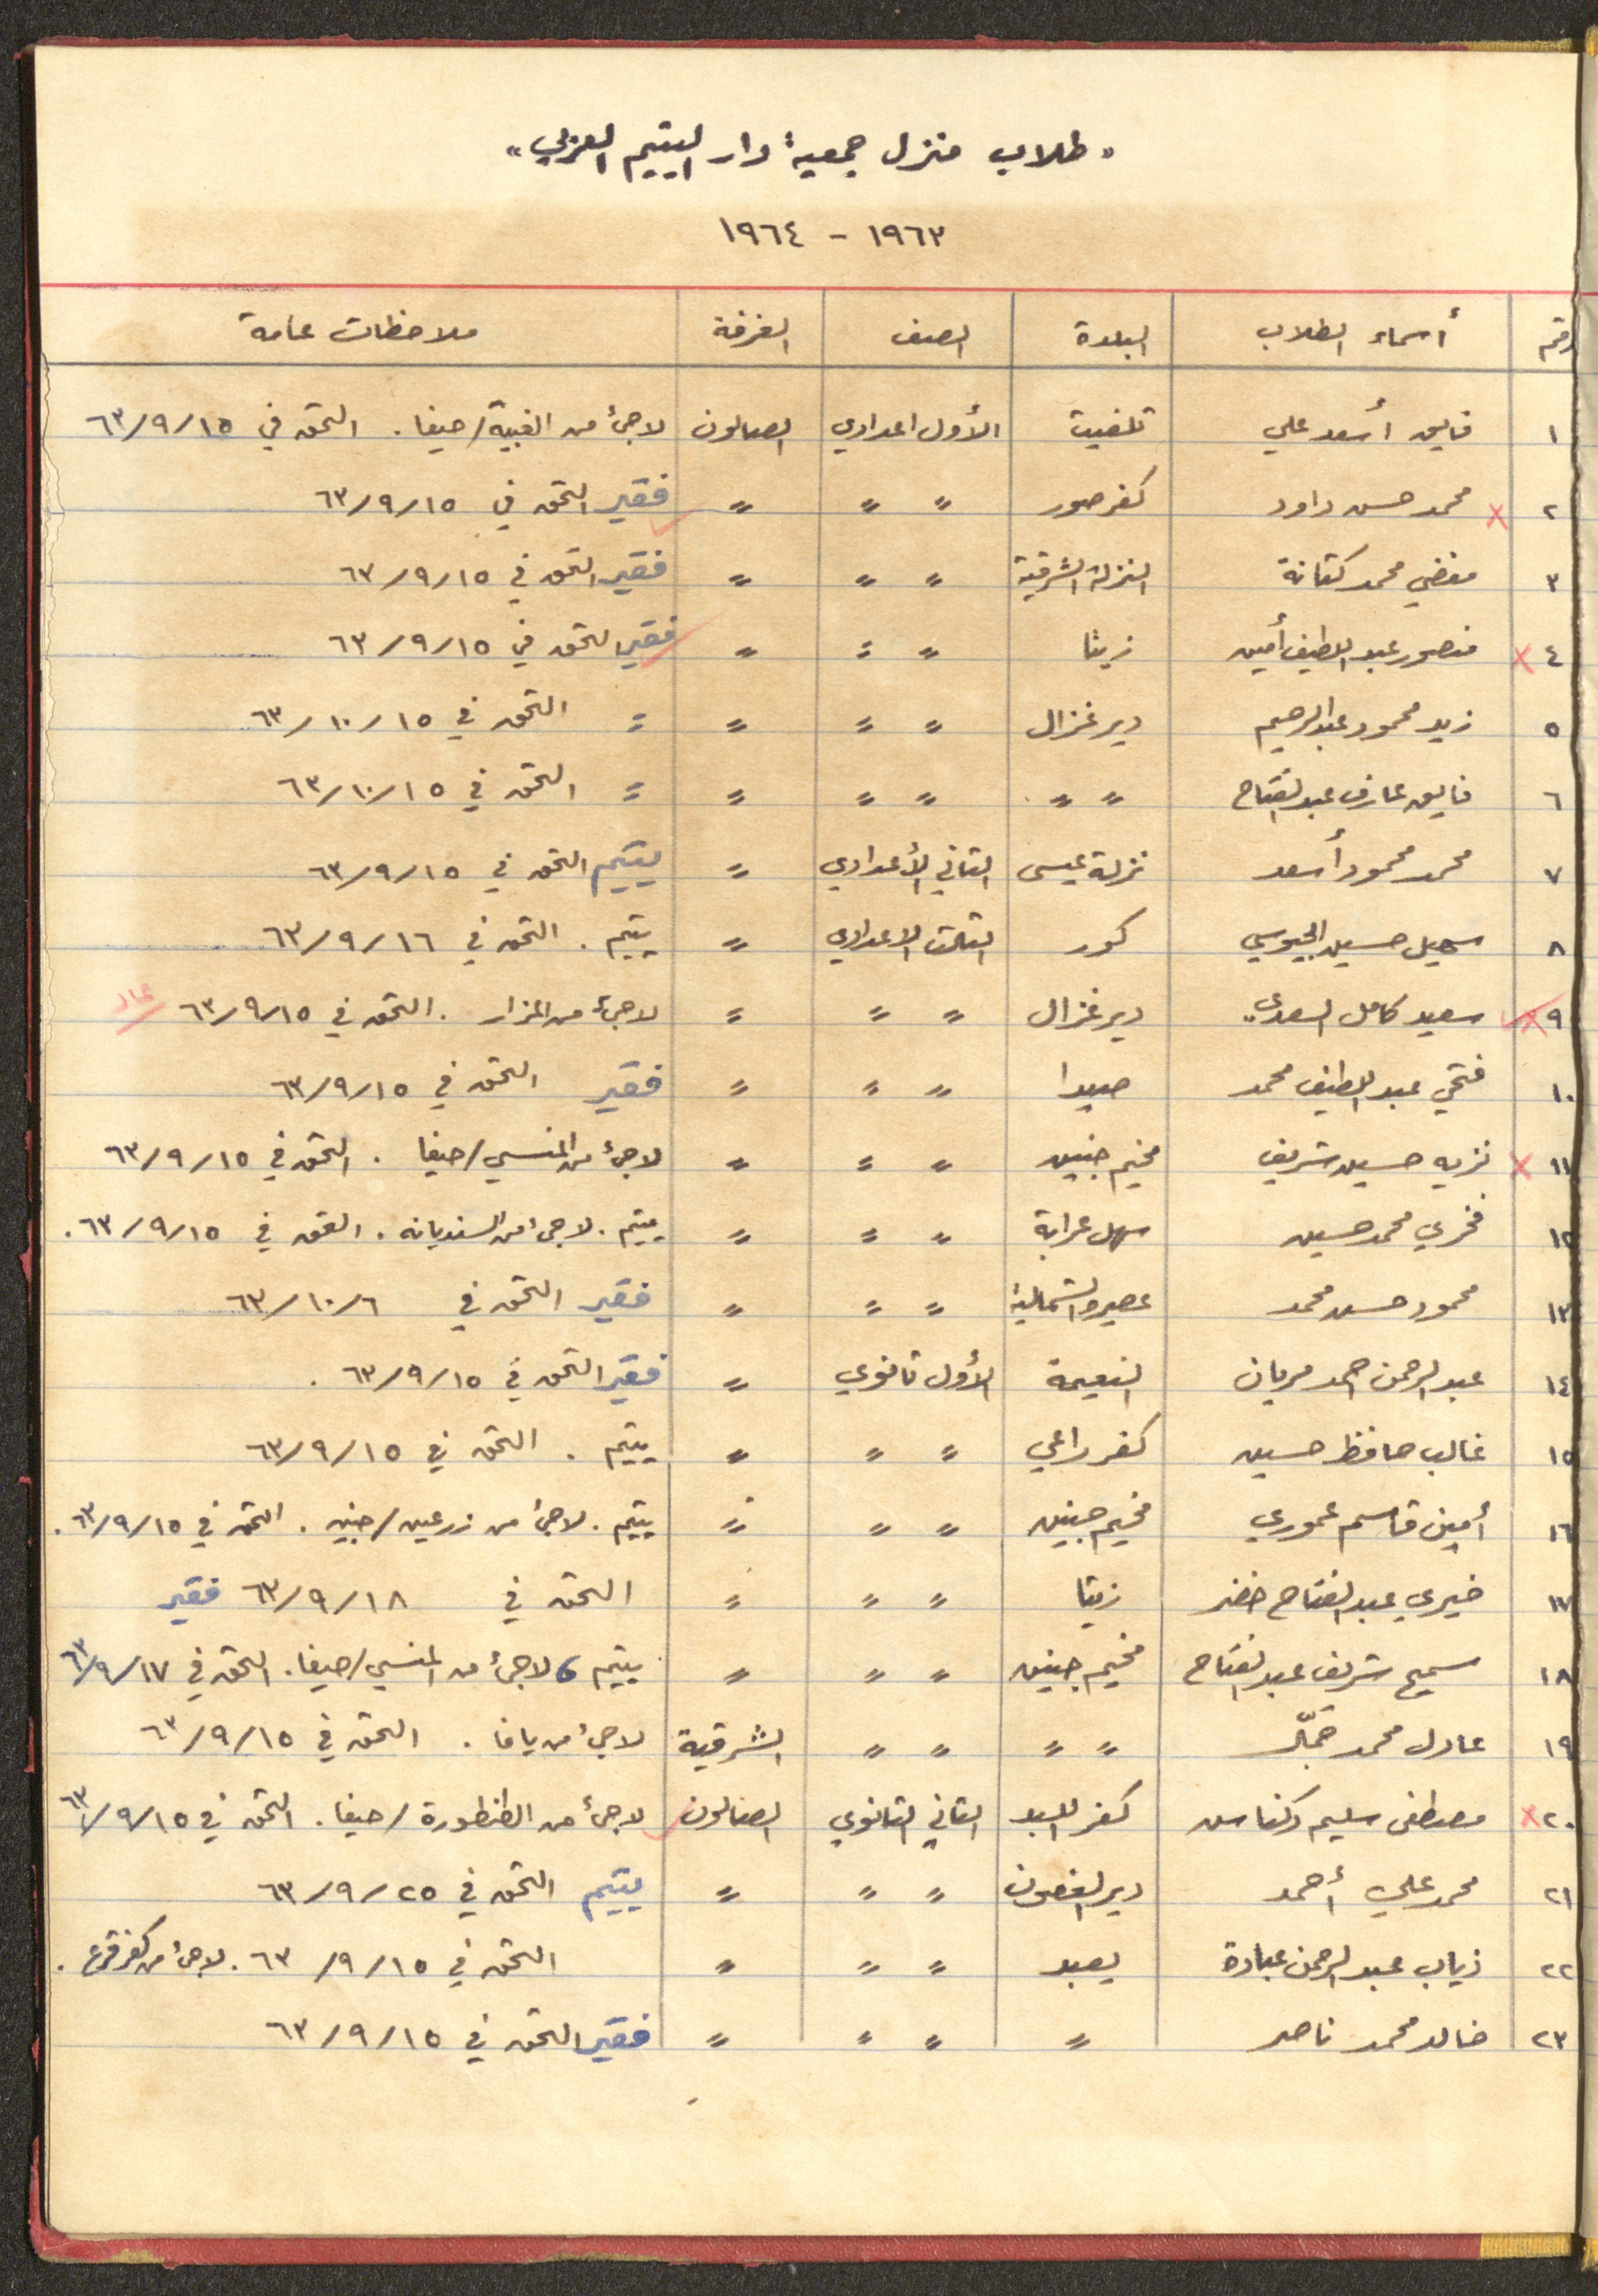 « طلاب منزل جمعية دار اليتيم العربي »
١٩٦٣ - ١٩٦٤
رقم أسماء الطلاب البلدة الصف الغرفة ملاحظات عامة
١ فايق أسعد علي تلفيت الأول اعدادي الصالون لاجئ من الغبية/حيفا . التحق في ١٥/٩/٦٣
٢ محمد حسن داود كفر صور " " " فقير التحق في ١٥/٩/٦٣
٣ مفضي محمد كتانة النزلة الشرقية " " " فقير التحق في ١٥/٩/٦٣
٤ منصور عبد اللطيف أمين زيتا " " " فقير التحق في ١٥/٩/٦٣
٥ زيد محمود عبد الرحيم دير غزال " " " " التحق في ١٥/١٠/٦٣
٦ فايق عارف عبد الفتاح " " " " " " التحق في ١٥/١٠/٦٣
٧ محمد محمود أسعد نزلة عيسى الثاني الأعدادي " يتيم التحق في ١٥/٩/٦٣
٨ سهيل حسين الجيوسي كور الثالث الاعدادي " يتيم . التحق في ١٦/٩/٦٣
٩ سعيد كامل السعدي دير غزال " " " لاجئ من المزار . التحق في ١٥/٩/٦٣
١٠ فتحي عبد اللطيف محمد صيدا " " " فقير التحق في ١٥/٩/٦٣
١١ نزيه حسين شريف مخيم جنين " " " لاجئ من المنسي/حيفا . التحق في ١٥/٩/٦٣
١٢ فخري محمد حسين سهل عرابة " " " يتيم . لاجئ من السنديانه . التحق في ١٥/٩/٦٣ .
١٣ محمود حسن محمد عصيرة الشمالية " " " فقير التحق في ٦/١٠/٦٣
١٤ عبد الرحمن احمد مريان النعيمة الأول ثانوي " فقير التحق في ١٥/٩/٦٣ .
١٥ غالب حافظ حسين كفر راعي " " " يتيم . التحق في ١٥/٩/٦٣
١٦ أمين قاسم عموري مخيم جنين " " " يتيم . لاجئ من زرعين/جنين . التحق في ١٥/٩/٦٣ .
١٧ خيري عبد الفتاح خضر زيتا " " " التحق في ١٨/٩/٦٣ فقير
١٨ سميح شريف عبد الفتاح مخيم جنين " " " يتيم ، لاجئ من المنسي/حيفا . التحق في ١٧/٩/٦٣
١٩ عادل محمد " " " " الشرقية لاجئ من يافا . التحق في ١٥/٩/٦٣
٢٠ مصطفى سليم دكناس كفر اللبد الثاني الثانوي الصالون لاجئ من الطنطورة/حيفا . التحق في ١٥/٩/٦٣
٢١ محمد علي أحمد دير الغصون " " " يتيم التحق في ٢٥/٩/٦٣
٢٢ ذياب عبد الرحمن عبادة يعبد " " " التحق في ١٥/٩/٦٣ . لاجئ من كفر قرع .
٢٣ خالد محمد ناصر " " " " فقير التحق في ١٥/٩/٦٣